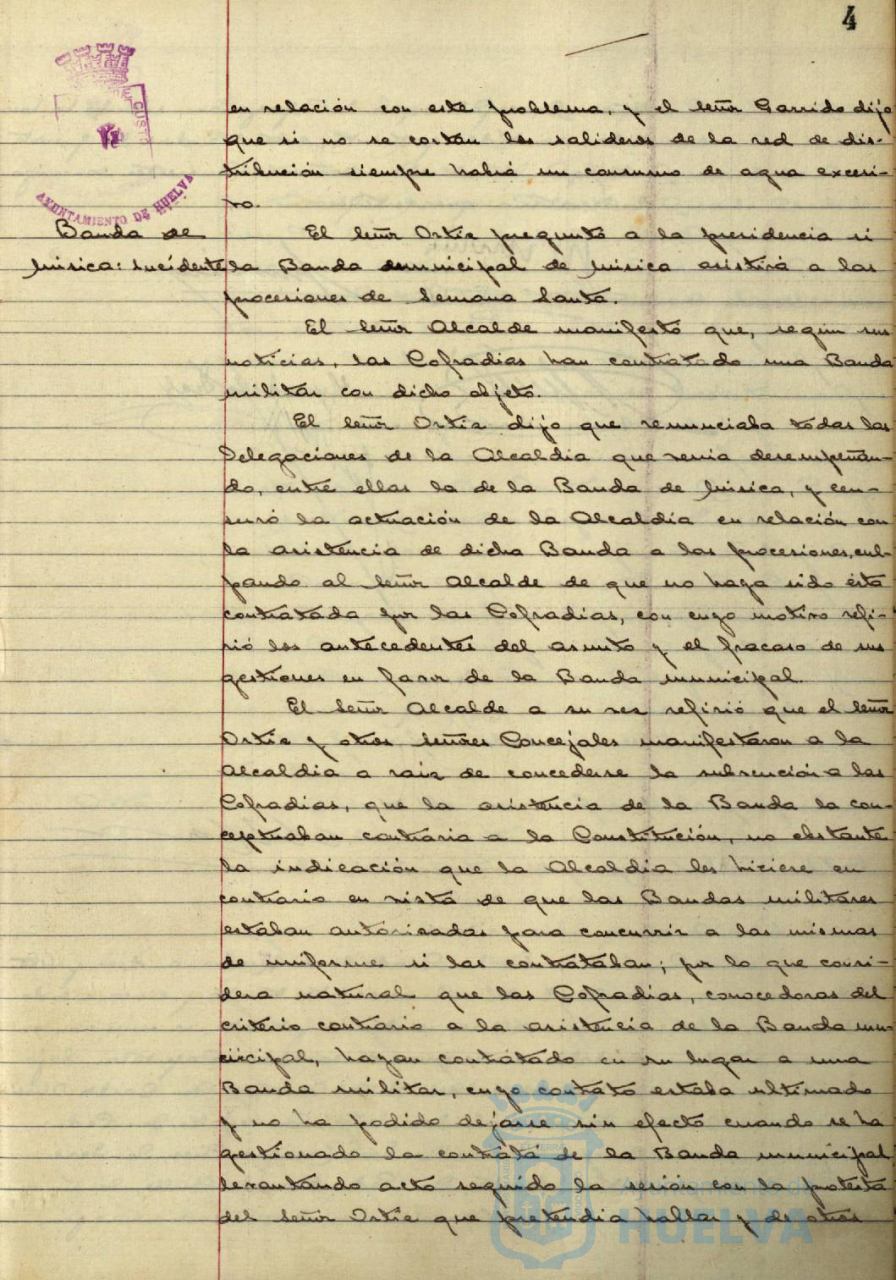 4
en relación con este problema, y el señor Garrido dijo
que si no se cortan los salideros de la red de dis-
tribución siempre habrá un consumo de agua excesi-
vo.
AYUNTAMIENTO DE HUELVA
Banda de
Música: Incidente
El señor Ortiz preguntó a la presidencia si
la Banda municipal de Música asistirá a las
procesiones de Semana Santa.
El señor Alcalde manifestó que, según sus
noticias, las Cofradías han contratado una Banda
militar con dicho objeto.
El señor Ortiz dijo que renunciaba todas las
Delegaciones de la Alcaldía que venía desempeñan-
do, entre ellas la de la Banda de Música, y cen-
suró la actuación de la Alcaldía en relación con
la asistencia de dicha Banda a las procesiones, cul-
pando al señor Alcalde de que no haya sido ésta
contratada por las Cofradías, con cuyo motivo refi-
rió los antecedentes del asunto y el fracaso de sus
gestiones en favor de la Banda municipal.
El señor Alcalde a su vez refirió que el señor
Ortiz y otros señores Concejales manifestaron a la
Alcaldía a raiz de concederse la subvención a las
Cofradías, que la asistencia de la Banda la con-
ceptuaban contraria a la Constitución, no obstante
la indicación que la Alcaldía les hiciere en
contrario en vista de que las Bandas militares
estaban autorizadas para concurrir a las mismas
de uniforme si las contrataban; por lo que consi-
dera natural que las Cofradías, conocedoras del
criterio contrario a la asistencia de la Banda mu-
nicipal, hayan contratado en su lugar a una
Banda militar, cuyo contrato estaba ultimado
y no ha podido dejarse sin efecto cuando se ha
gestionado la contrata de la Banda municipal
levantando acto seguido la sesión con la protesta
del señor Ortiz que pretendia hablar y de otros
HUELVA